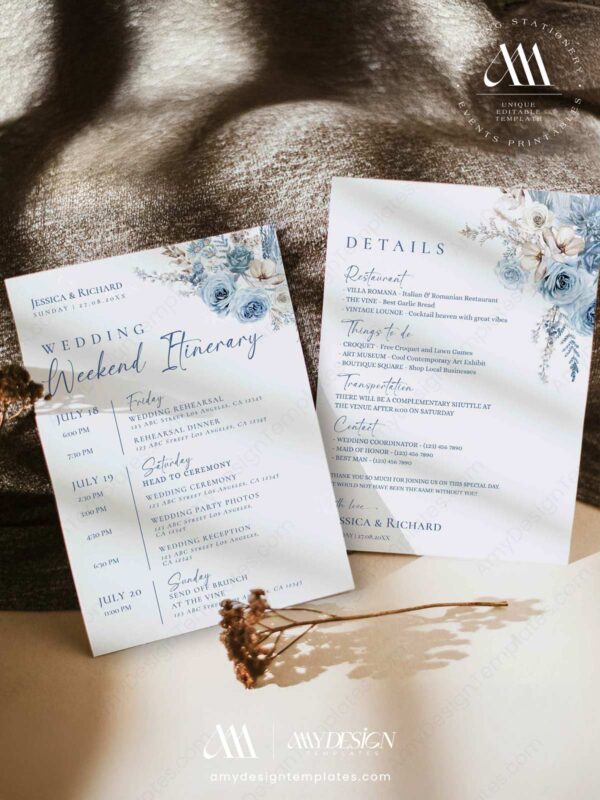 STATIONERY • EVENTS PRINTABLES
AM
UNIQUE
EDITABLE
TEMPLATE
JESSICA & RICHARD
SUNDAY | 27.08.20XX
WEDDING
Weekend Itinerary
JULY 18
Friday
6:00 PM
WEDDING REHEARSAL
123 ABC STREET LOS ANGELES, CA 12345
7:30 PM
REHEARSAL DINNER
123 ABC STREET LOS ANGELES, CA 12345
JULY 19
Saturday
2:30 PM
HEAD TO CEREMONY
3:00 PM
WEDDING CEREMONY
123 ABC STREET LOS ANGELES, CA 12345
4:30 PM
WEDDING PARTY PHOTOS
123 ABC STREET LOS ANGELES,
CA 12345
6:30 PM
WEDDING RECEPTION
123 ABC STREET LOS ANGELES,
CA 12345
JULY 20
Sunday
11:00 PM
SEND OFF BRUNCH
AT THE VINE
123 ABC STREET LOS ANGELES, CA 12345
DETAILS
Restaurant
- VILLA ROMANA - Italian & Romanian Restaurant
- THE VINE - Best Garlic Bread
- VINTAGE LOUNGE - Cocktail heaven with great vibes
Things to do
- CROQUET - Free Croquet and Lawn Games
- ART MUSEUM - Cool Contemporary Art Exhibit
- BOUTIQUE SQUARE - Shop Local Businesses
Transportation
THERE WILL BE A COMPLEMENTARY SHUTTLE AT
THE VENUE AFTER 6:00 ON SATURDAY
Contact
- WEDDING COORDINATOR - (123) 456 7890
- MAID OF HONOR - (123) 456 7890
- BEST MAN - (123) 456 7890
THANK YOU SO MUCH FOR JOINING US ON THIS SPECIAL DAY.
WOULD NOT HAVE BEEN THE SAME WITHOUT YOU!
love...
ESSICA & RICHARD
| 27.08.20XX
AM AMYDESIGN
TEMPLATES
amydesigntemplates.com